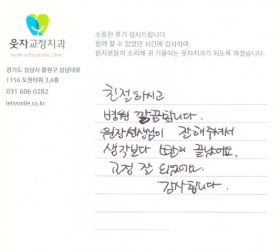 웃자교정치과
smile orthodontic clinic
경기도 성남시 중원구 성남대로
1156 도원타워 3,4층
031 606 0282
letsmile.co.kr
소중한 후기 감사드립니다.
함께 할 수 있었던 시간에 감사하며,
환자분들의 소리에 귀 기울이는 웃자치과가 되도록 하겠습니다.
친절하시고
병원 깔끔합니다.
원장선생님이 잘해주셔서
생각보다 빨리 끝났어요.
교정 잘 되었어요.
감사합니다.